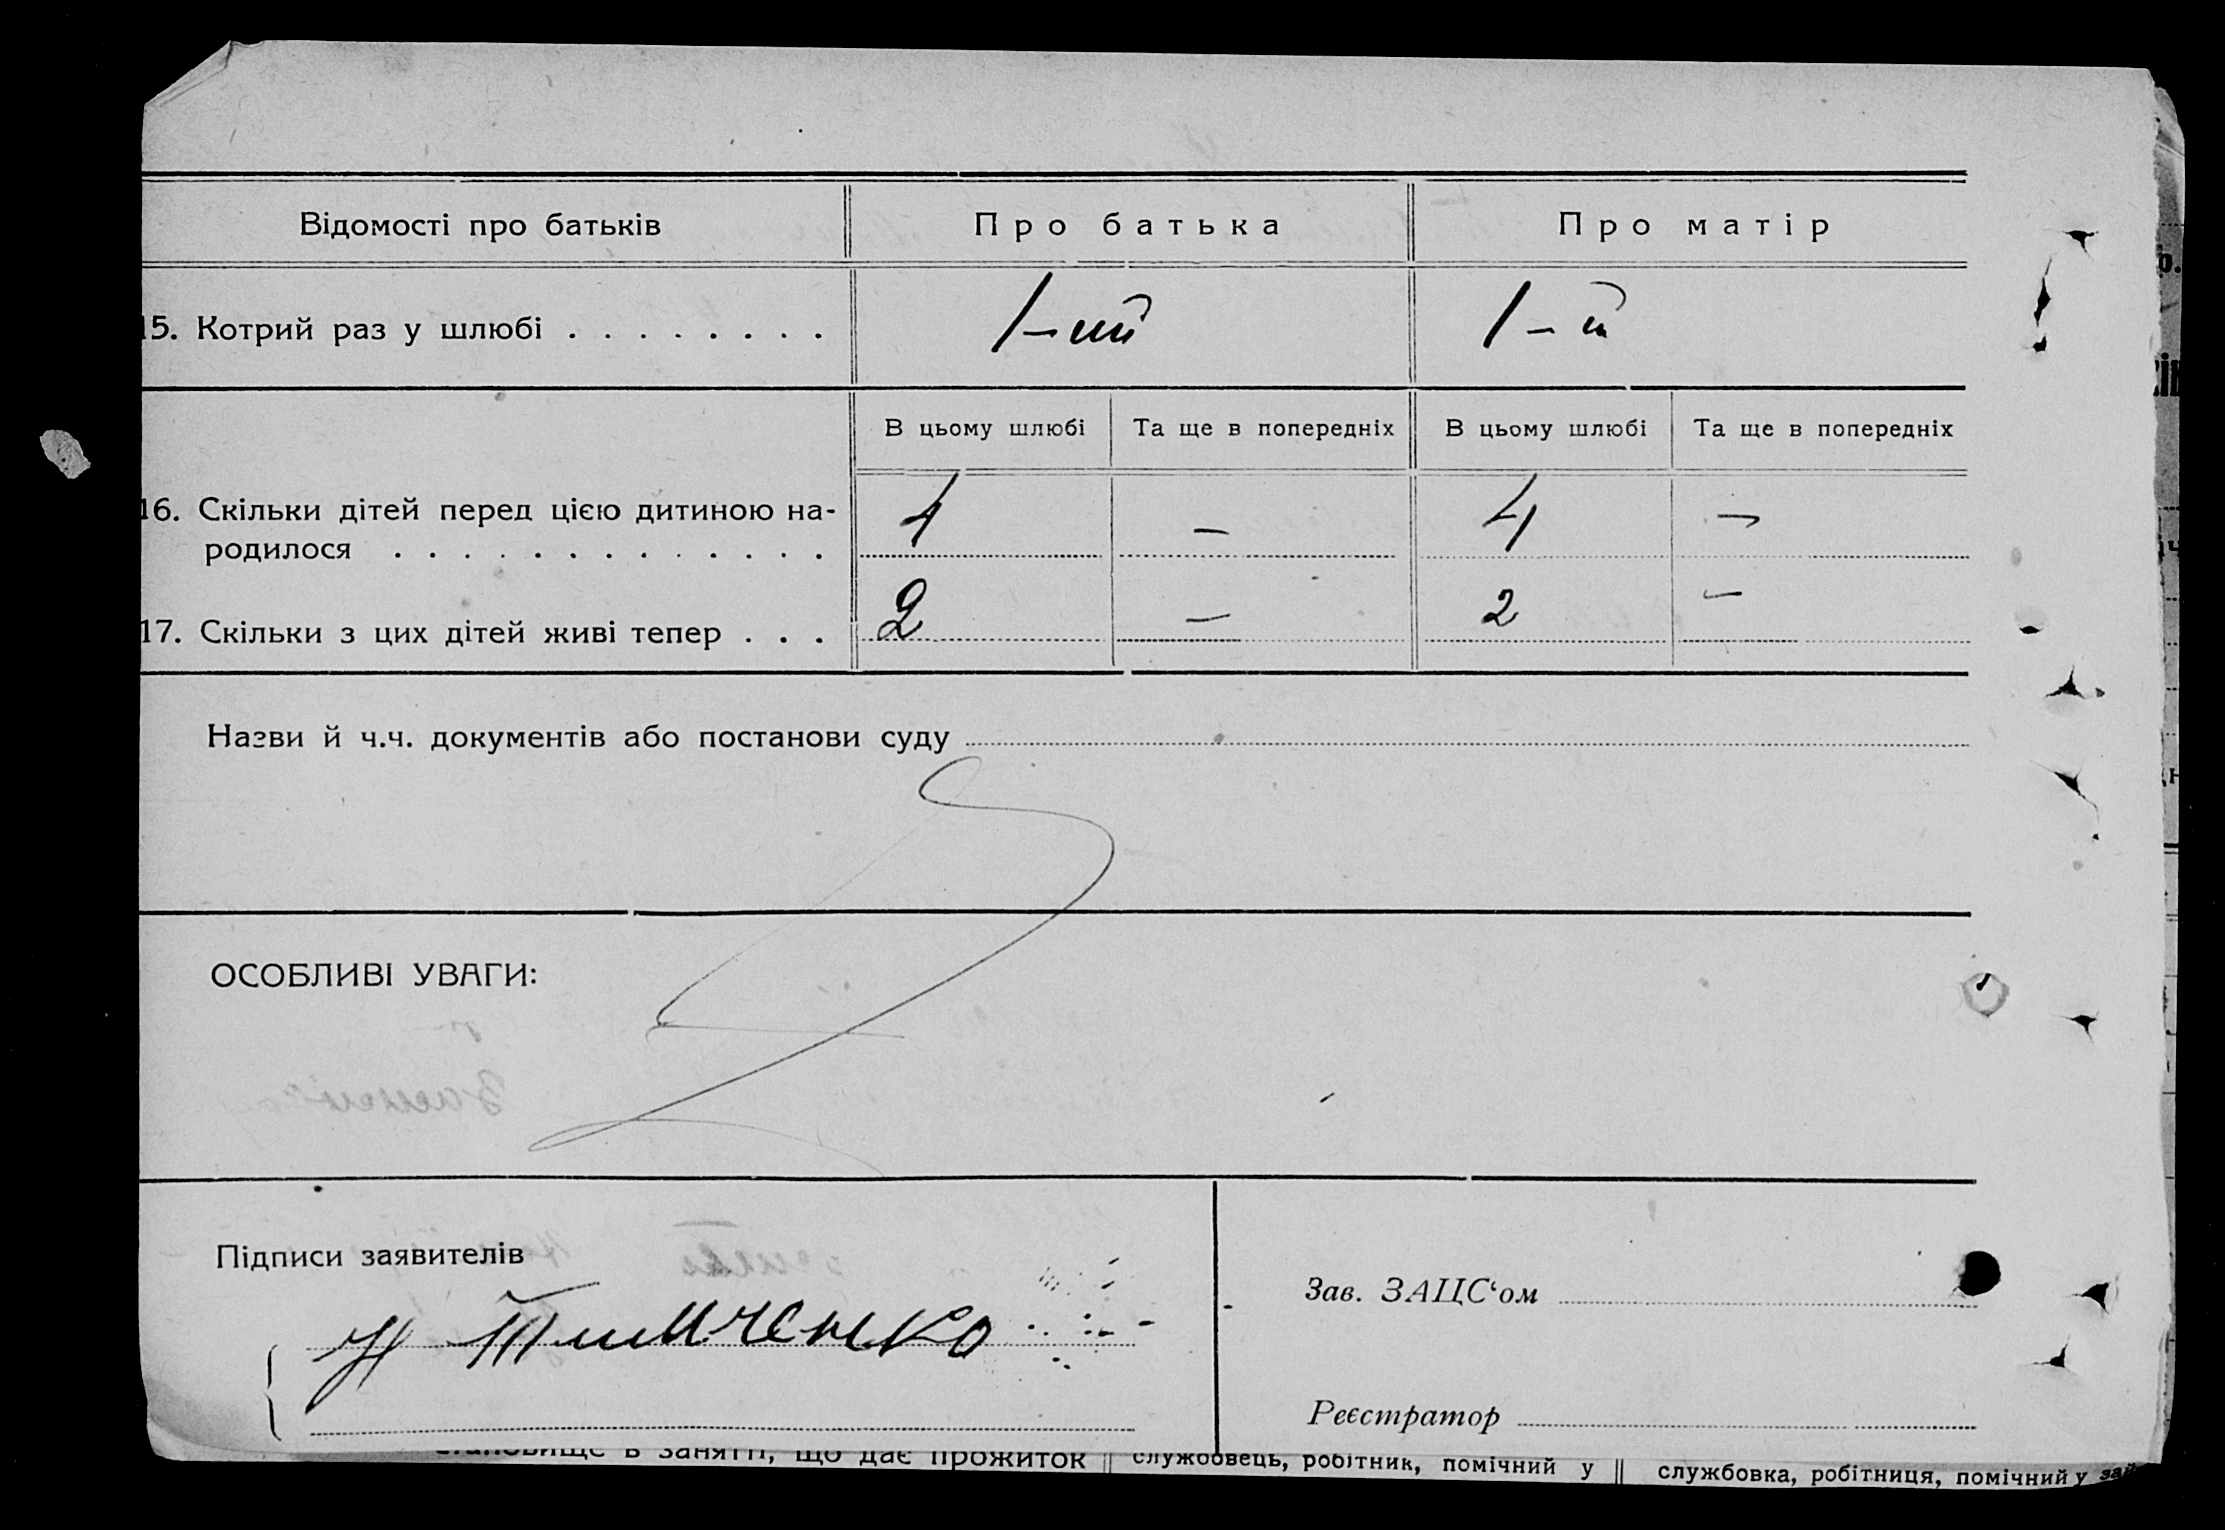 Відомості про батьків Про батька Про матір
15. Котрий раз у шлюбі . . . . . . . . 1-ий 1-й
В цьому шлюбі Та ще в попередніх В цьому шлюбі Та ще в попередніх
16. Скільки дітей перед цією дитиною на-
родилося . . . . . . . . . . . . . 4 — 4 —
17. Скільки з цих дітей живі тепер . . . 2 — 2 —
Назви й ч.ч. документів або постанови суду
ОСОБЛИВІ УВАГИ:
Підписи заявителів
Тимченко
Зав. ЗАЦС‘ом
Реєстратор
становище в занятті, що дає прожиток службовець, робітник, помічний у службовка, робітниця, помічний у